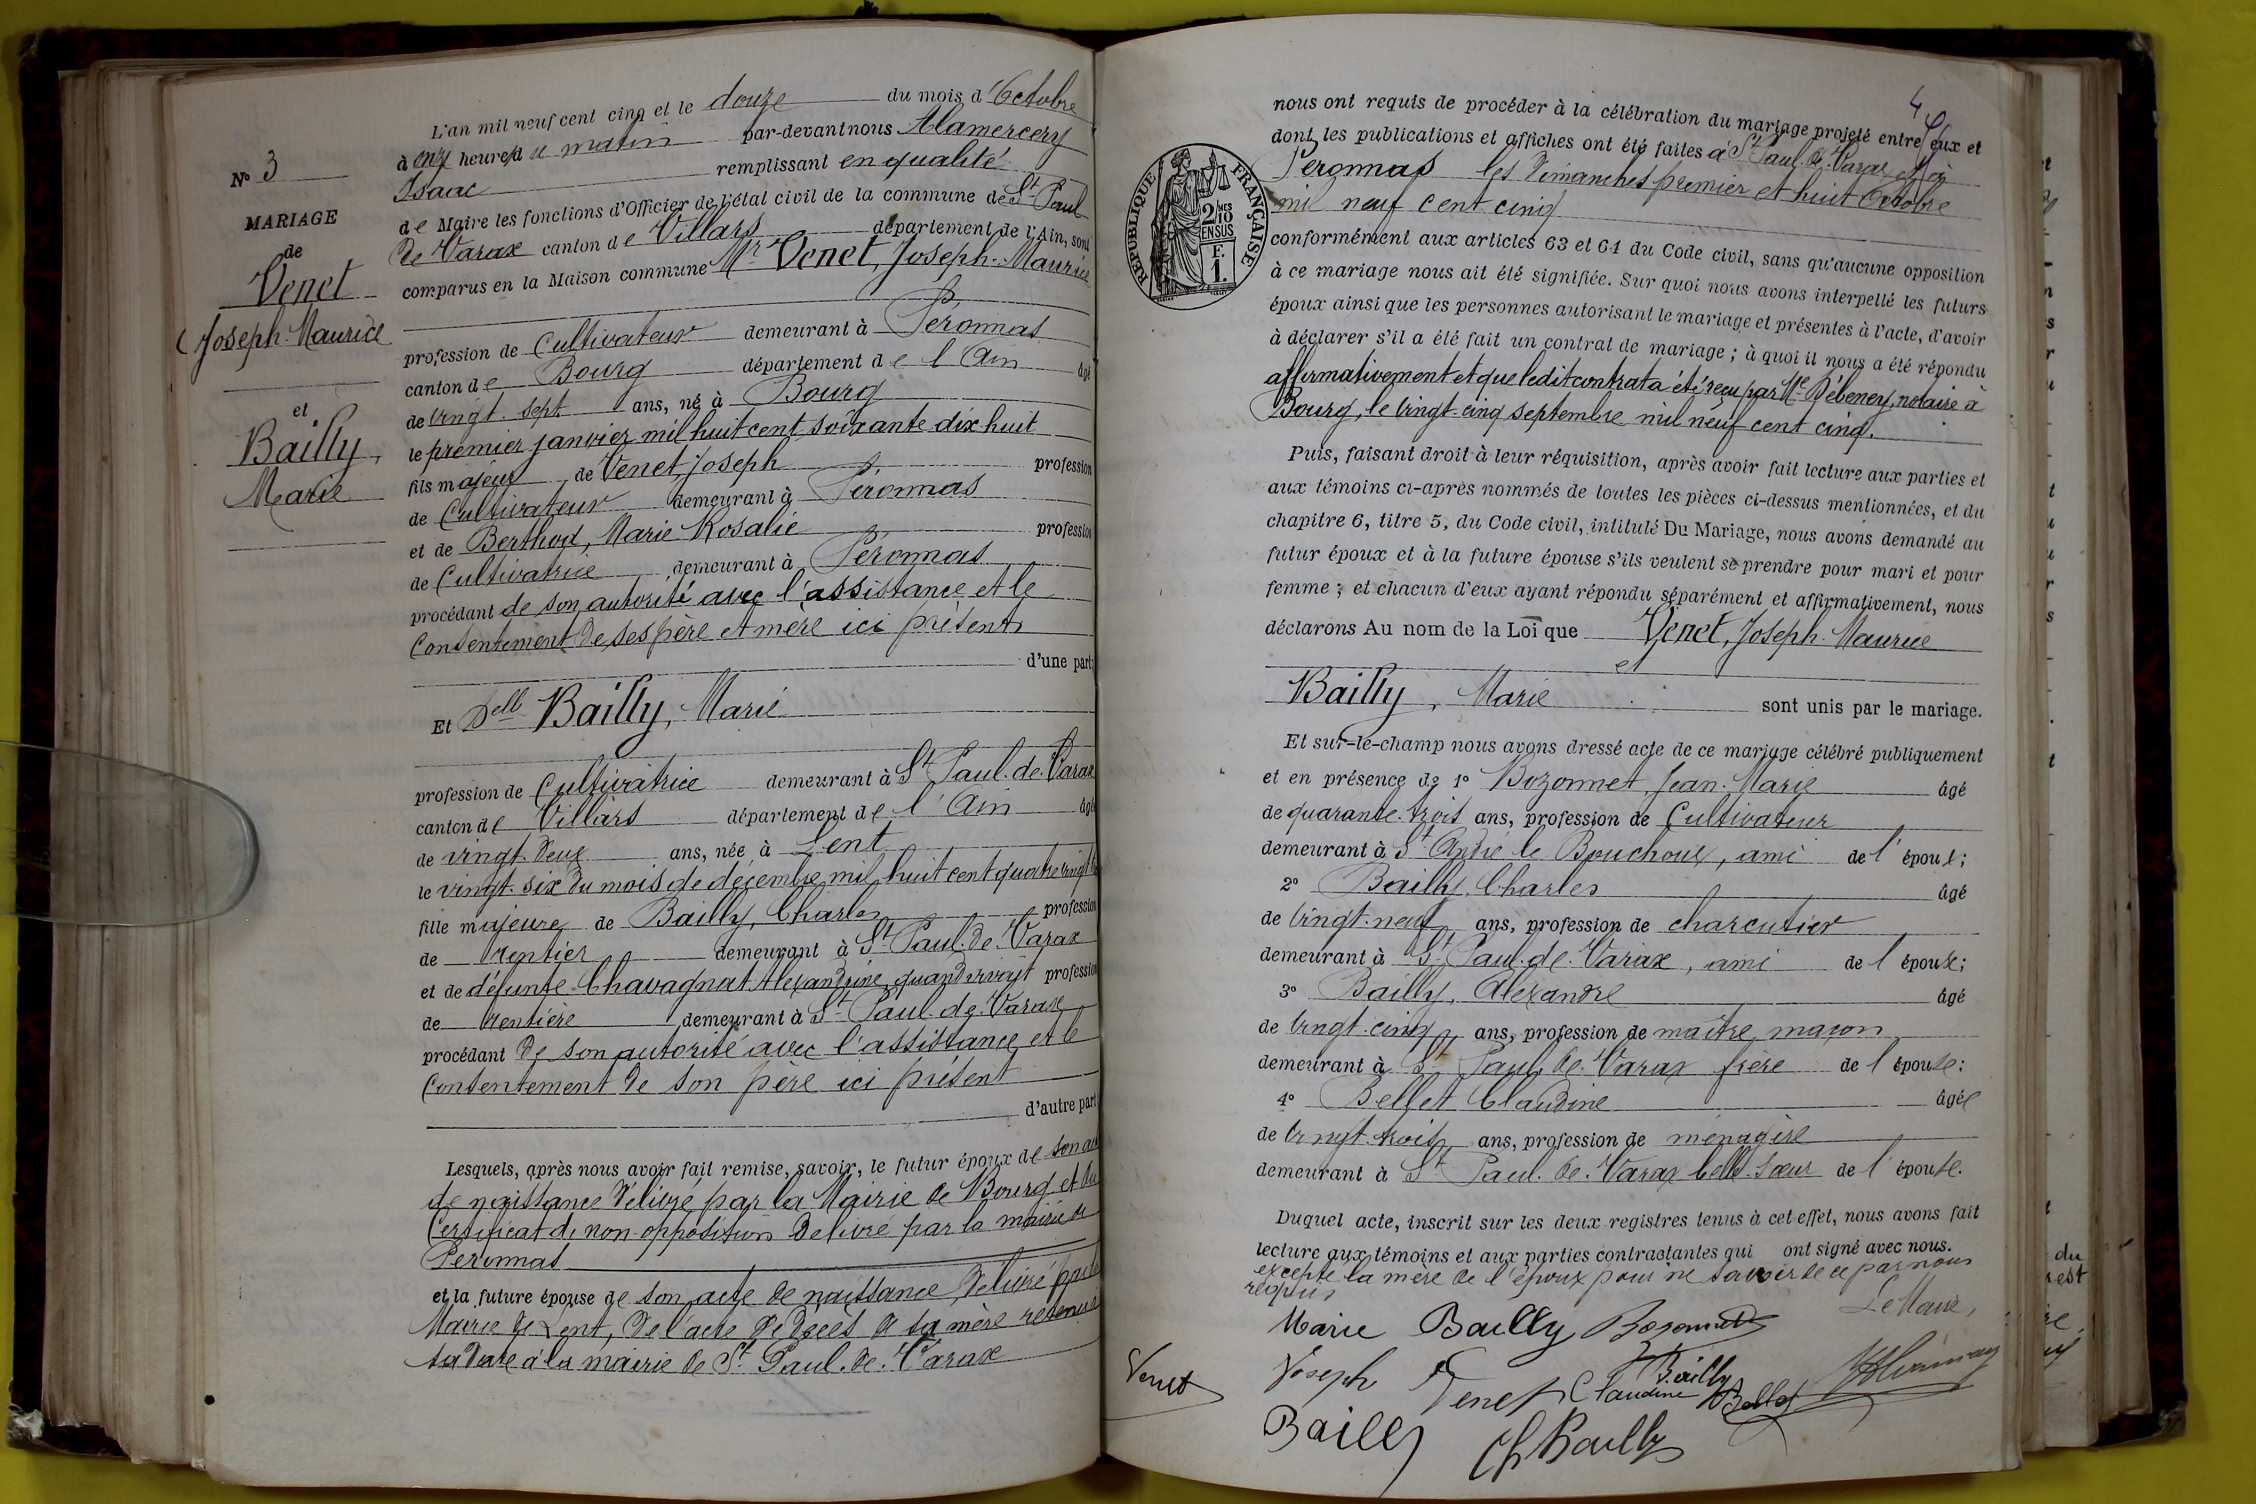 N° 3
MARIAGE
de
Venet
Joseph-Maurice
et
Bailly,
Marie
L'an mil neuf cent cinq et le douze du mois d'Octobre
à onze heures du matin par-devant nous Alamercery
Isaac remplissant en qualité
de Maire les fonctions d'Officier de l'état civil de la commune de St Paul
de Varax canton de Villars département de l'Ain, sont
comparus en la Maison commune Mr Venet, Joseph-Maurice
profession de Cultivateur demeurant à Péronnas
canton de Bourg département de l'Ain âgé
de vingt-sept ans, né à Bourg
le premier janvier mil huit cent soixante dix huit
fils majeur de Venet, Joseph profession
de Cultivateur demeurant à Péronnas
et de Berthod, Marie-Rosalie profession
de Cultivatrice demeurant à Péronnas
procédant de son autorité avec l'assistance et le
Consentement de ses père et mère ici présents
d'une part;
Et Delle Bailly, Marie
profession de Cultivatrice demeurant à St Paul-de-Varax
canton de Villars département de l'Ain âgée
de vingt-deux ans, née à Lent
le vingt-six du mois de décembre mil huit cent quatre vingt
fille majeure de Bailly, Charles profession
de rentier demeurant à St Paul-de-Varax
et de défunte Chavagnat Alexandrine, quand vivait profession
de rentière demeurant à St Paul-de-Varax
procédant de son autorité avec l'assistance et le
Consentement de son père ici présent
d'autre part
Lesquels, après nous avoir fait remise, savoir, le futur époux de son acte
de naissance délivré par la Mairie de Bourg et du
Certificat de non-opposition délivré par la mairie de
Péronnas
et la future épouse de son acte de naissance délivré p la
Mairie de Lent, de l'acte de décès de sa mère
sa date à la mairie de St Paul-de-Varax
4
nous ont requis de procéder à la célébration du mariage projeté entre eux et
dont les publications et affiches ont été faites à St Paul-de-Varax et à
Péronnas les Dimanches premier et huit Octobre
mil neuf cent cinq
RÉPUBLIQUE FRANÇAISE
2/10 MES
EN SUS
F.
1.
conformément aux articles 63 et 64 du Code civil, sans qu'aucune opposition
à ce mariage nous ait été signifiée. Sur quoi nous avons interpellé les futurs
époux ainsi que les personnes autorisant le mariage et présentes à l'acte, d'avoir
à déclarer s'il a été fait un contrat de mariage; à quoi il nous a été répondu
affirmativement et que ledit contrat a été reçu par Me Débeney, notaire à
Bourg, le vingt-cinq septembre mil neuf cent cinq.
Puis, faisant droit à leur réquisition, après avoir fait lecture aux parties et
aux témoins ci-après nommés de toutes les pièces ci-dessus mentionnées, et du
chapitre 6, titre 5, du Code civil, intitulé Du Mariage, nous avons demandé au
futur époux et à la future épouse s'ils veulent se prendre pour mari et pour
femme; et chacun d'eux ayant répondu séparément et affirmativement, nous
déclarons Au nom de la Loi que Venet, Joseph-Maurice
et
Bailly, Marie sont unis par le mariage.
Et sur-le-champ nous avons dressé acte de ce mariage célébré publiquement
et en présence de 1° Bozonnet, Jean-Marie âgé
de quarante-trois ans, profession de Cultivateur
demeurant à St André le Bouchoux, ami de l'époux;
2° Bailly, Charles âgé
de vingt-neuf ans, profession de charcutier
demeurant à St Paul-de-Varax, ami de l'épouse;
3° Bailly, Alexandre âgé
de vingt-cinq ans, profession de maître maçon
demeurant à St Paul-de-Varax frère de l'épouse;
4° Bellet Claudine âgée
de vingt-trois ans, profession de ménagère
demeurant à St Paul-de-Varax belle-sœur de l'épouse.
Duquel acte, inscrit sur les deux registres tenus à cet effet, nous avons fait
lecture aux témoins et aux parties contractantes qui ont signé avec nous.
excepté la mère de l'époux pour ne savoir de ce par nous
requis
Le Maire,
Marie Bailly Bozonnet
Venet Joseph Venet Claudine Bellet
Bailly
Bailly Ch Bailly